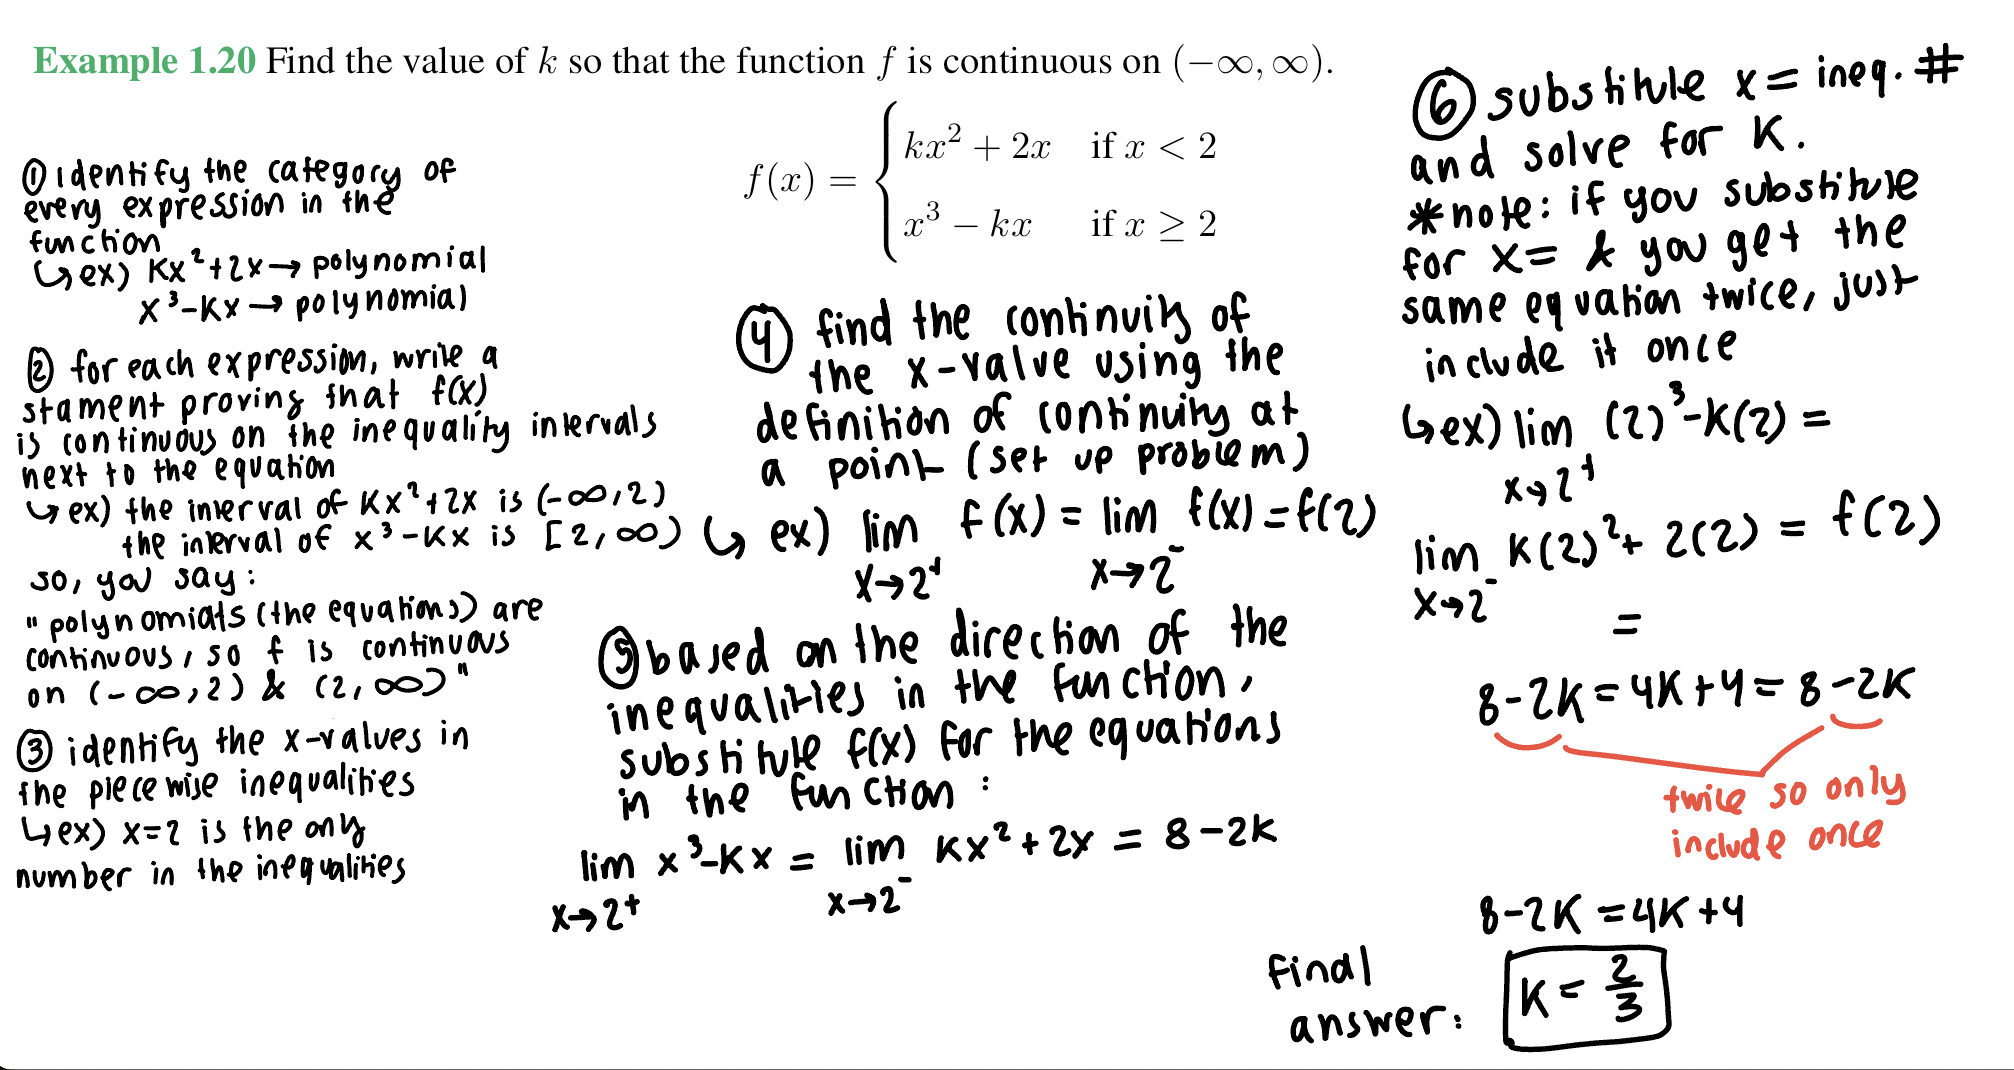 Example 1.20 Find the value of k so that the function f is continuous on (−∞, ∞).
f(x) = { kx² + 2x if x < 2
x³ − kx if x ≥ 2
① identify the category of
every expression in the
function
↳ ex) Kx²+2x → polynomial
x³-Kx → polynomial
② for each expression, write a
stament proving that f(x)
is continuous on the inequality intervals
next to the equation
↳ ex) the interval of Kx²+2x is (-∞,2)
the interval of x³-Kx is [2,∞)
so, you say:
"polynomials (the equations) are
continuous, so f is continuous
on (-∞,2) & (2,∞)"
③ identify the x-values in
the piecewise inequalities
↳ ex) x=2 is the only
number in the inequalities
④ find the continuity of
the x-value using the
definition of continuity at
a point (set up problem)
↳ ex) lim f(x) = lim f(x) = f(2)
x→2⁺ x→2⁻
⑤ based on the direction of the
inequalities in the function,
substitute f(x) for the equations
in the function:
lim x³-Kx = lim Kx²+2x = 8-2K
x→2⁺ x→2⁻
⑥ substitute x = ineq. #
and solve for K.
*note: if you substitute
for x= & you get the
same equation twice, just
include it once
↳ ex) lim (2)³-K(2) =
x→2⁺
lim K(2)²+ 2(2) = f(2)
x→2⁻
=
8-2K = 4K+4 = 8-2K
twice so only
include once
8-2K = 4K+4
final
answer:
K = 2/3